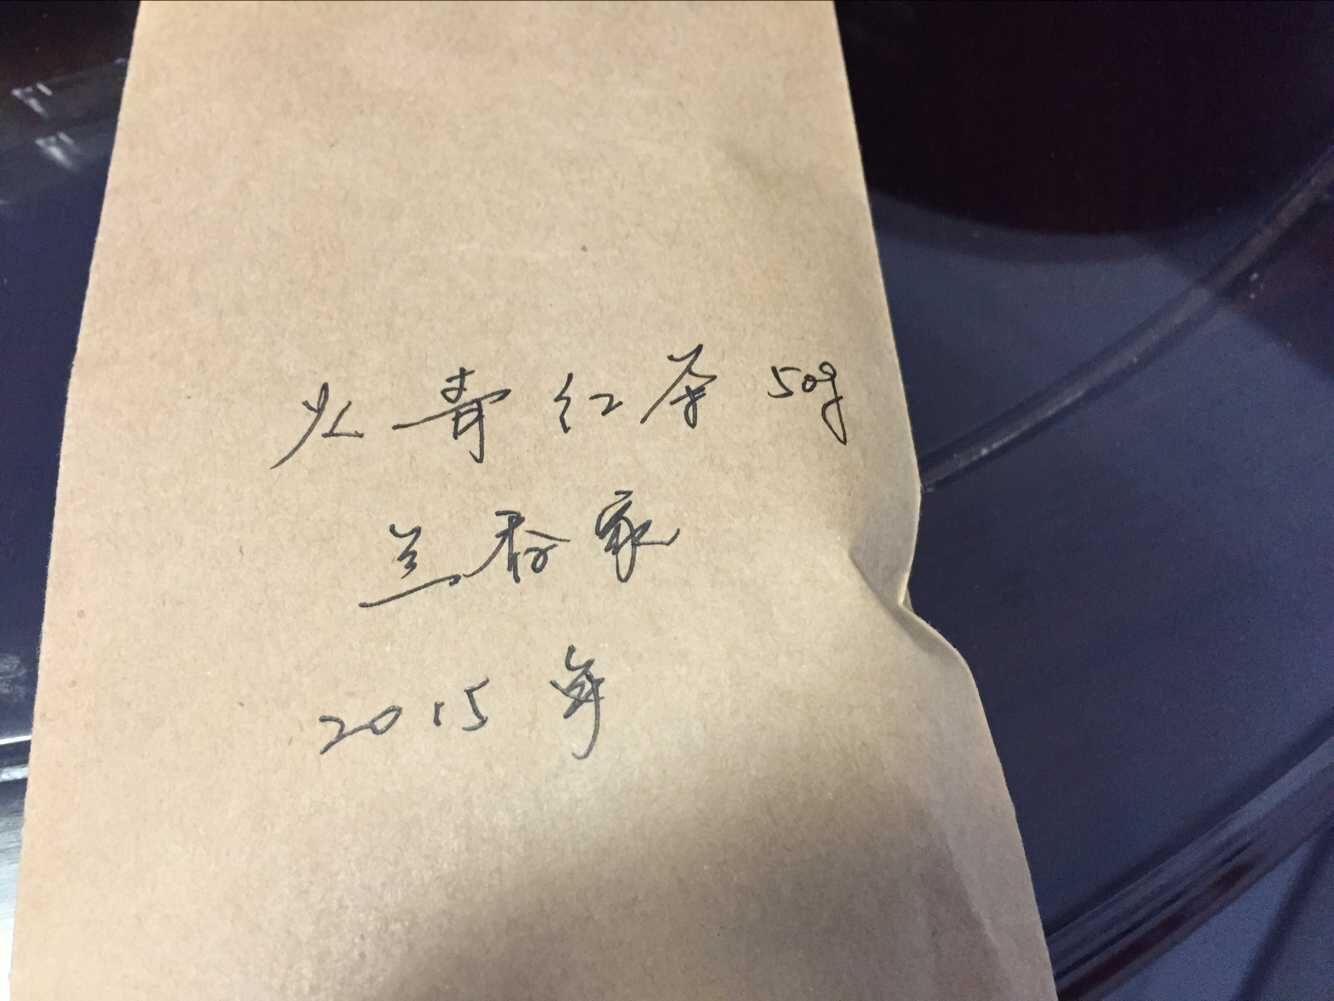 火青红茶 50g
兰香家
2015 年